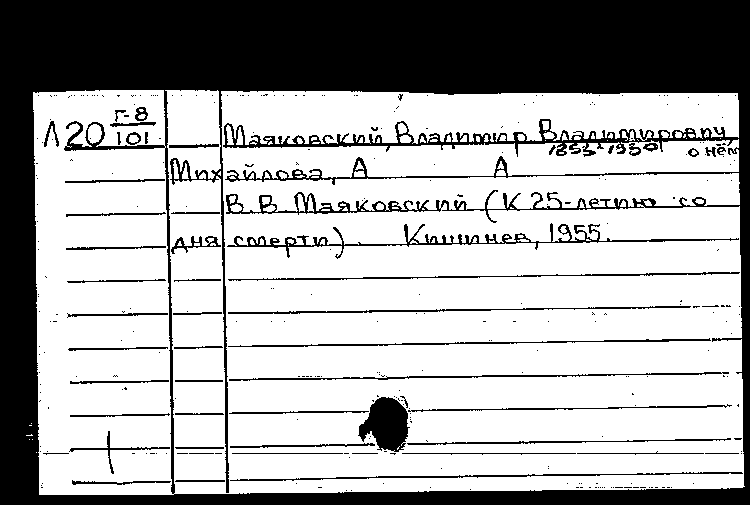 Л20 Г-8/101 Маяковский, Владимир Владимирович
1893-1930 о нём
Михайлова, А А
В.В. Маяковский (К 25-летию со
дня смерти). Кишинев, 1955.